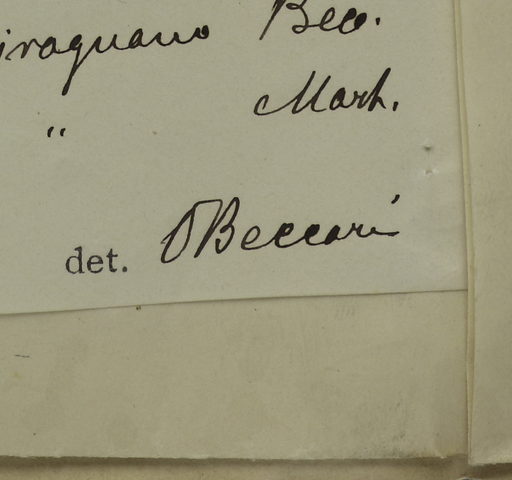 iraguano Becc.
" Mart.
det. OBeccari